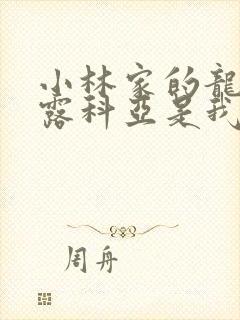 小林家的龍
露科亞是我
周舟